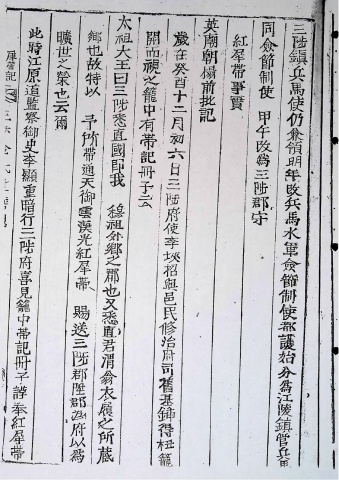 三陟鎭兵馬使仍兼領明年改兵馬水軍僉節制使都護始分爲江陵鎭管兵馬
同僉節制使 甲午改爲三陟郡守
紅犀帶事實
英廟朝楊前批記
歲在癸酉十二月初六日三陟府使李 招與邑民修治府司舊基鋤得杻籠
開而視之籠中有帶記冊子云
太祖大王曰三陟悉直國即我 穆祖外鄕之郡也又悉直君渭翁衣履之所藏
鄕也故特以 予所帶通天御雲漢光紅犀帶 賜送三陟郡陞郡爲府以爲
曠世之榮也云爾
此時江原道監察御史李顯重暗行三陟府喜見籠中帶記冊子諄奉紅犀帶
犀帶記